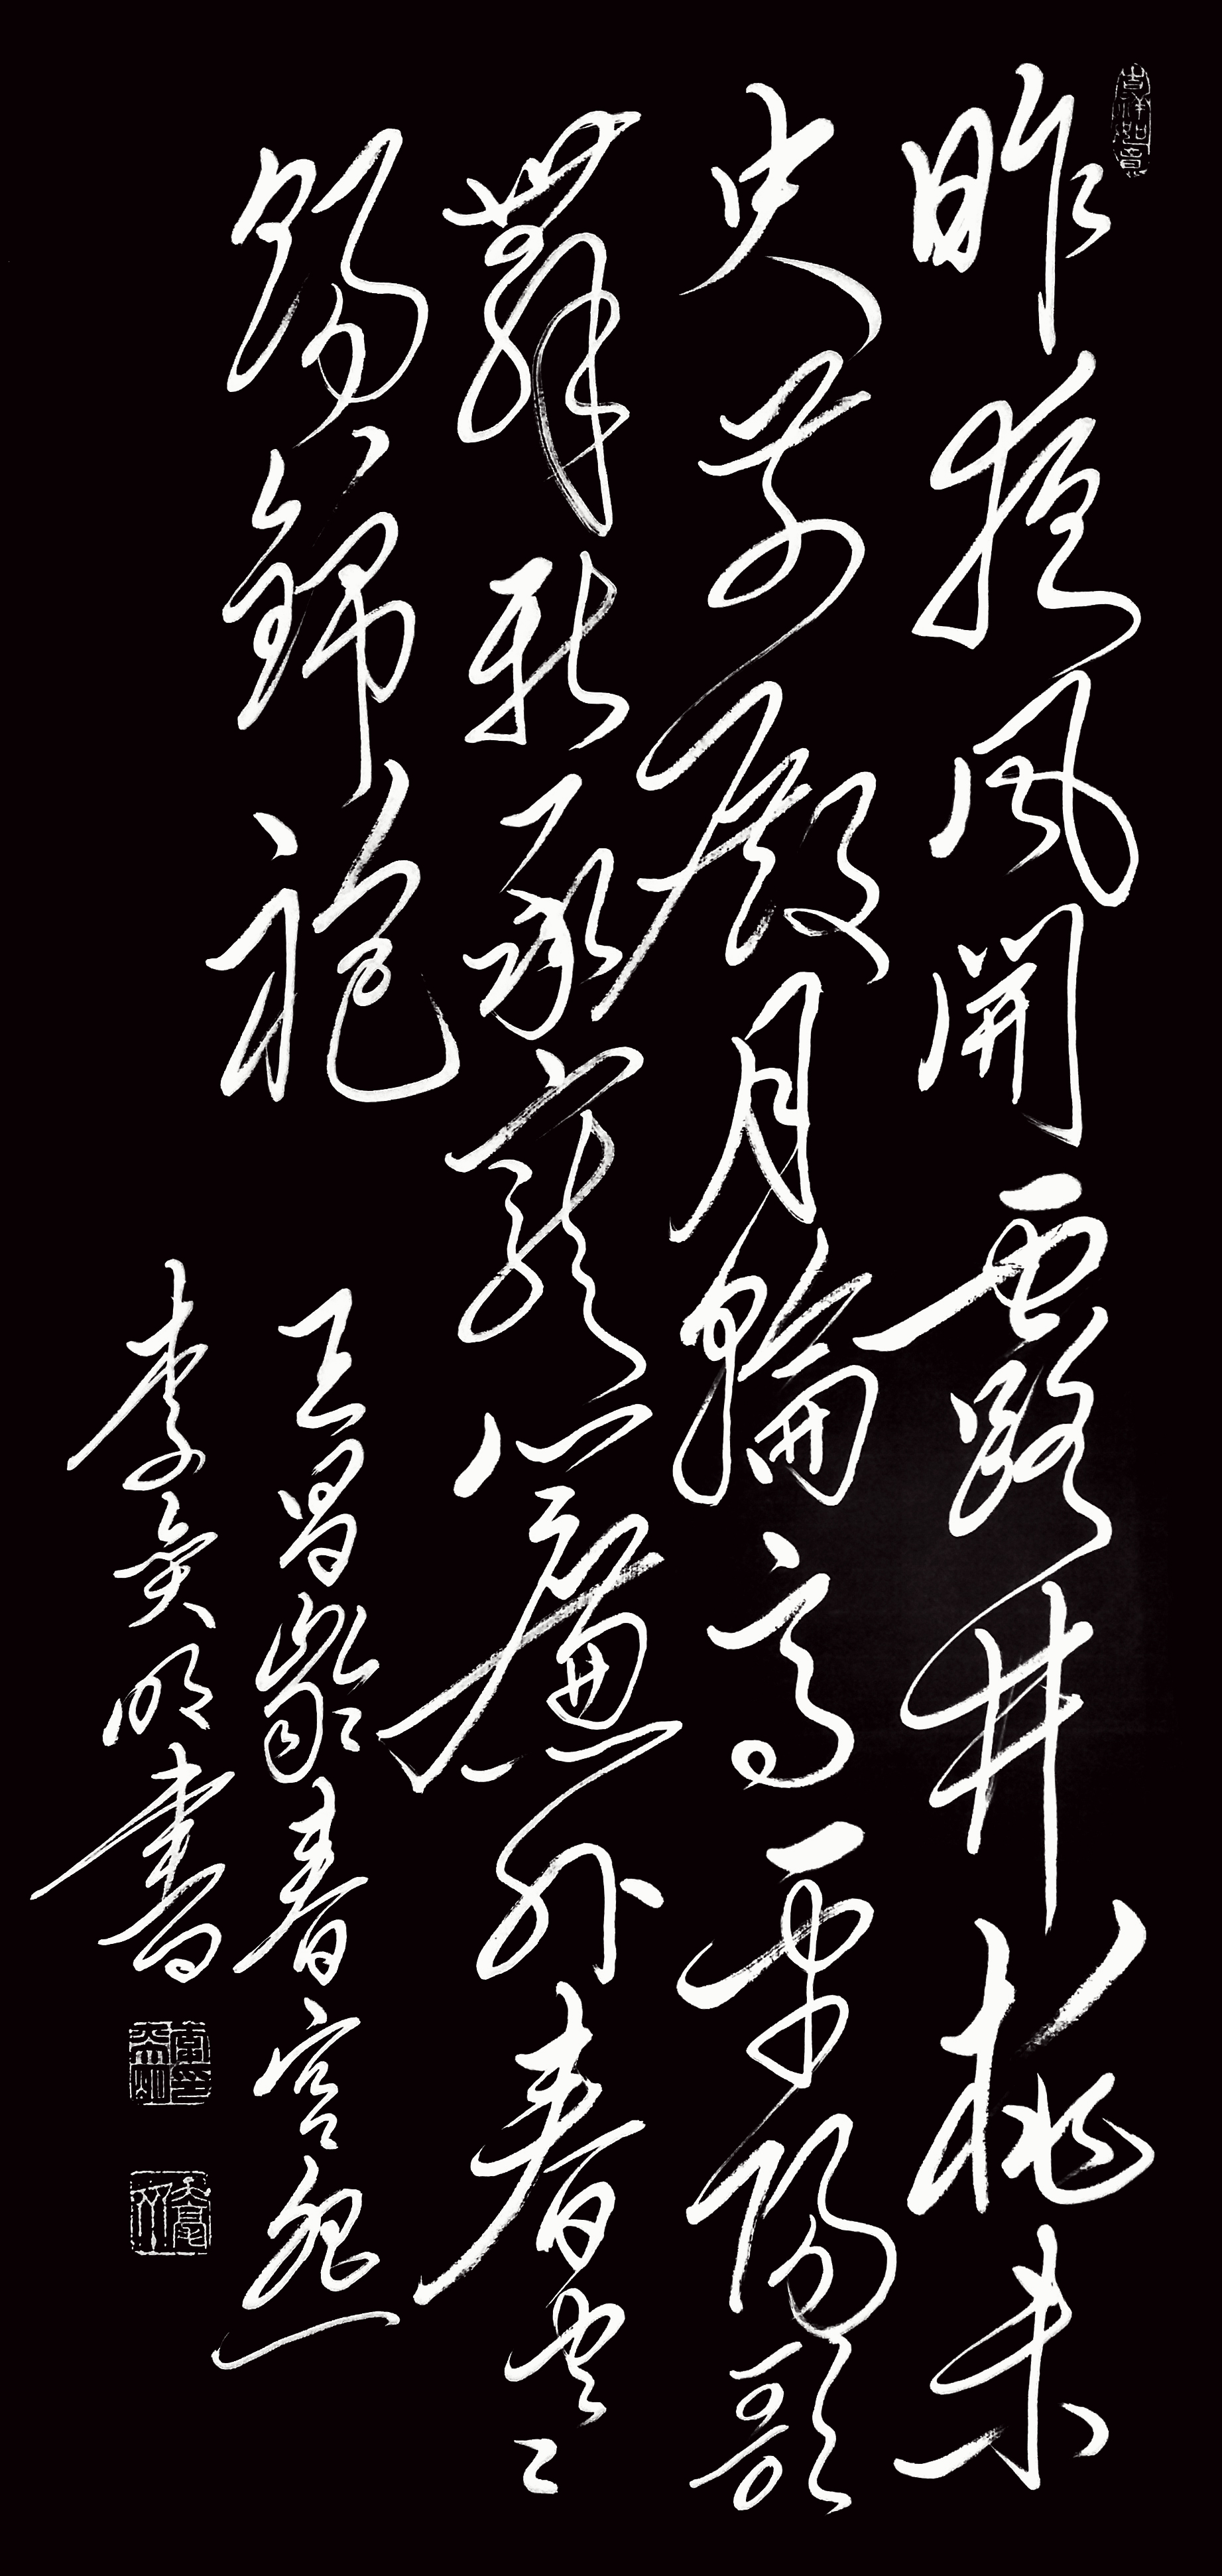 吉祥如意
昨夜風開露井桃未
央前殿月輪高平陽歌
舞新承寵簾外春寒
賜錦袍
王昌齡春宮怨
李奐明書